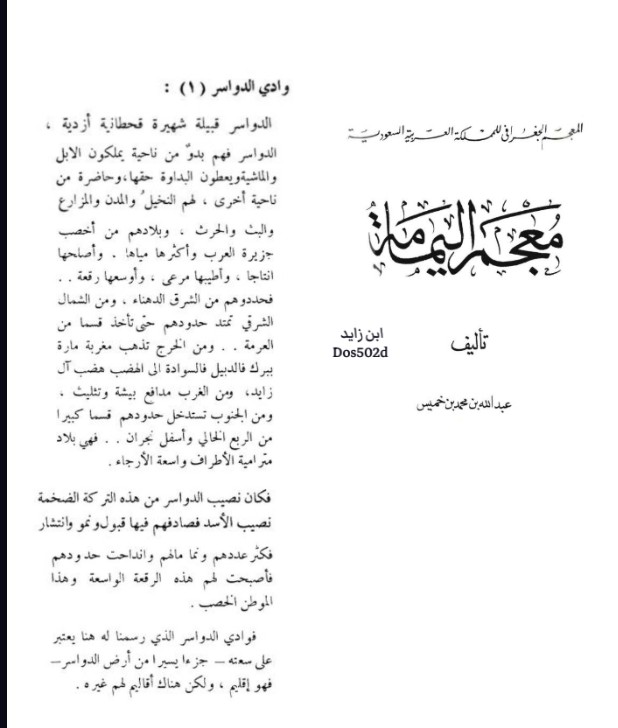 المعجم الجغرافي للمملكة العربية السعودية
معجم اليمامة
تأليف
ابن زايد
Dos502d
عبدالله بن محمد بن خميس
وادي الدواسر (١) :
الدواسر قبيلة شهيرة قحطانية أزدية ،
الدواسر فهم بدوٌ من ناحية يملكون الابل
والماشية ويعطون البداوة حقها، وحاضرة من
ناحية أخرى ، لهم النخيلُ والمدن والمزارع
والبث والحرث ، وبلادهم من أخصب
جزيرة العرب وأكثرها مياها . وأصلحها
انتاجا ، وأطيبها مرعى ، وأوسعها رقعة . .
فحددوهم من الشرق الدهناء ، ومن الشمال
الشرقي تمتد حدودهم حتى تأخذ قسما من
العرمة . . ومن الخرج تذهب مغربة مارة
ببرك فالدبيل فالسوادة الى الهضب هضب آل
زايد، ومن الغرب مدافع بيشة وتثليث ،
ومن الجنوب تستدخل حدودهم قسما كبيرا
من الربع الخالي وأسفل نجران . . فهي بلاد
مترامية الأطراف واسعة الأرجاء .
فكان نصيب الدواسر من هذه التركة الضخمة
نصيب الأسد فصادفهم فيها قبول ونمو وانتشار
فكثر عددهم ونما مالهم وانداحت حدودهم
فأصبحت لهم هذه الرقعة الواسعة وهذا
الموطن الخصب .
فوادي الدواسر الذي رسمنا له هنا يعتبر
على سعته – جزءا يسيرا من أرض الدواسر –
فهو إقليم ، ولكن هناك أقاليم لهم غيره .